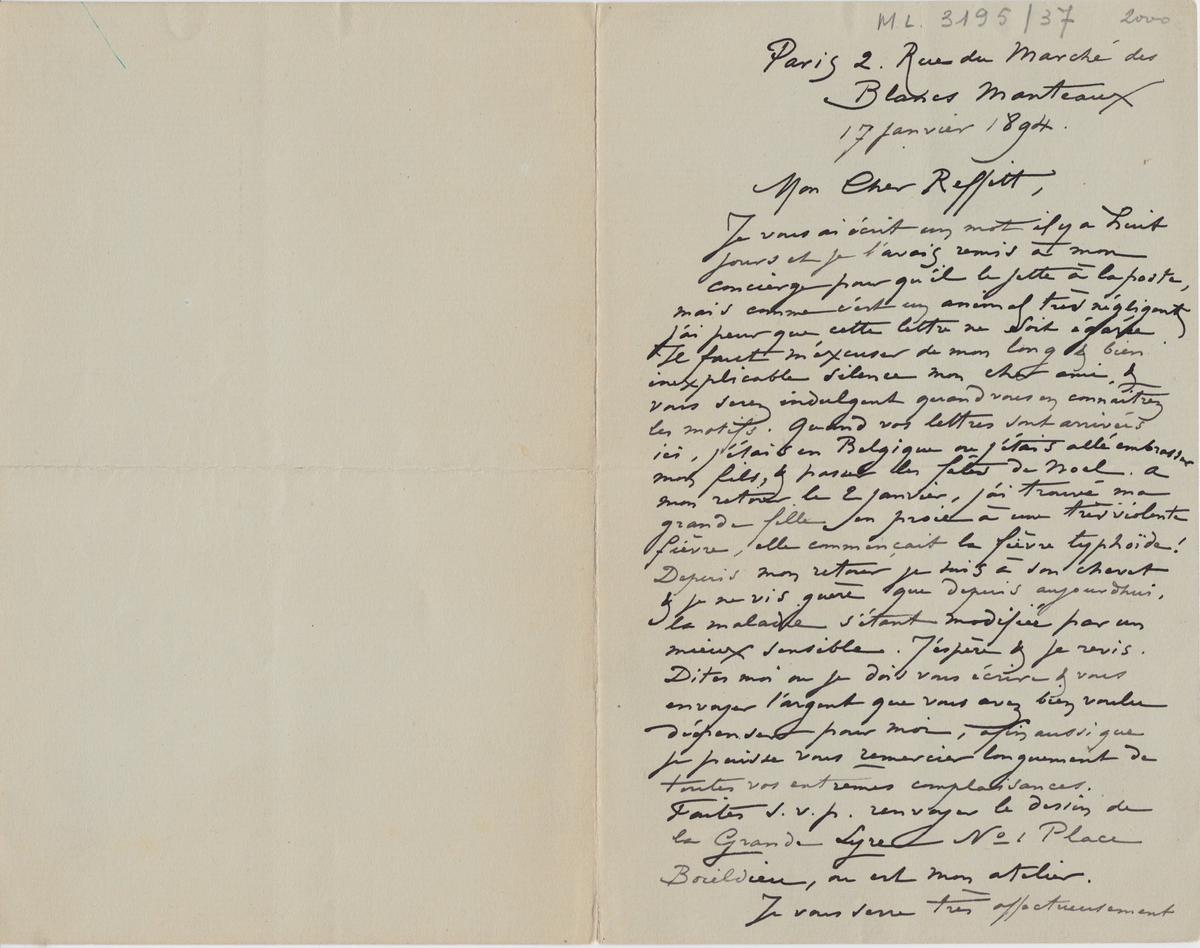 M.L. 3195/37 2000
Paris 2. Rue du Marché des
Blancs Manteaux
17 janvier 1894.
Mon Cher Reffitt,
Je vous ai écrit un mot il y a huit
jours et je l'avais remis à mon
concierge pour qu'il le jette à la poste,
mais comme c'est un animal très négligent
j'ai peur que cette lettre ne soit égarée
Il faut m'excuser de mon long & bien
inexplicable silence mon cher ami, &
vous serez indulgent quand vous en connaîtrez
les motifs. Quand vos lettres sont arrivées
ici, j'étais en Belgique ou j'étais allé embrasser
mon fils, & passer les fêtes de Noel. A
mon retour le 2 janvier, j'ai trouvé ma
grande fille en proie à une très violente
fièvre, elle commençait la fièvre typhoïde!
Depuis mon retour je suis à son chevet
& je ne vis guère que depuis aujourdhui,
la maladie s'étant modifiée par un
mieux sensible. J'espère & je revis.
Dites moi ou je dois vous écrire & vous
envoyer l'argent que vous avez bien voulu
dépenser pour moi, afin aussi que
je puisse vous remercier longuement de
toutes vos extrêmes complaisances.
Faites s.v.p. renvoyer le dessin de
la Grande Lyre No 1 Place
Boieldieu, ou est mon atelier.
Je vous serre très affectueusement